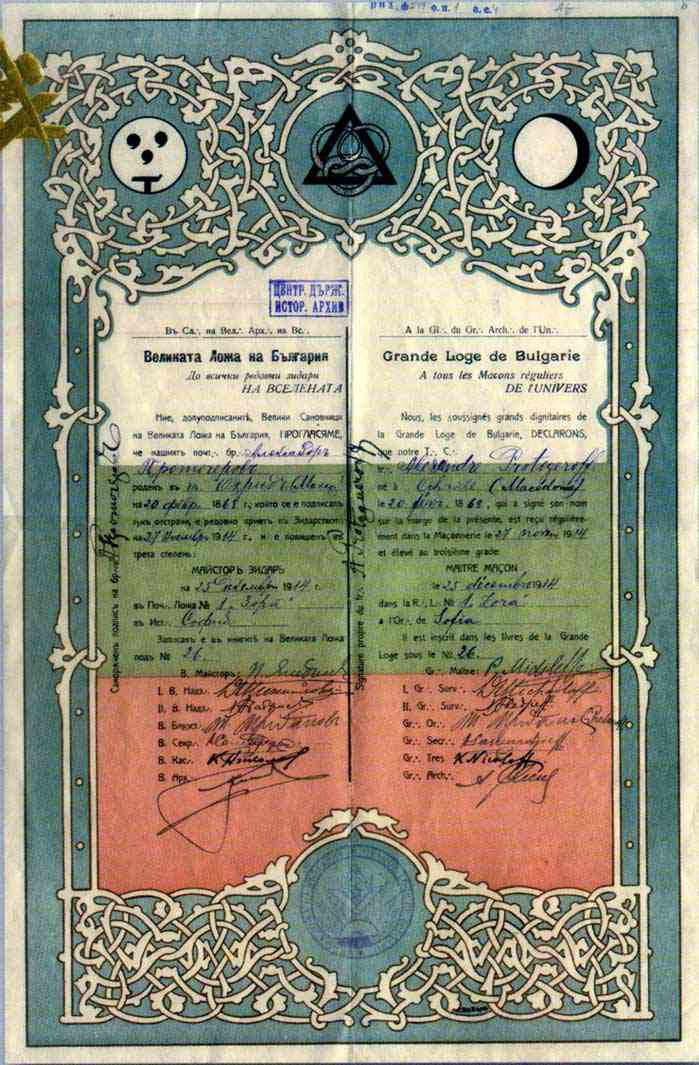 ЦЕНТР. ДЪРЖ.
ИСТОР. АРХИВ
Въ Сл.·. на Вел.·. Арх.·. на Вс.·.
Великата Ложа на България
До всички редовни зидари
НА ВСЕЛЕНАТА
Ние, долуподписанитѣ, Велики Сановници
на Великата Ложа на България, ПРОГЛАСЯМЕ,
че нашиятъ почт.·. бр.·. Александъръ
Протогеровъ
роденъ въ гр. Охридъ
на 20 февр. 1869 г., който се е подписалъ
тукъ отстрани, е редовно приетъ въ Зидарството
на 27 ноемврий 1914 г. и е повишенъ въ
трета степень:
МАЙСТОРЪ ЗИДАРЬ
на 25 декемврий 1914 г.
въ Поч.·. Ложа № 1. „Зора“
въ Ист.·. София
Записанъ е въ книгитѣ на Великата Ложа
подъ № 26.
В. Майсторъ
I. В. Надз.·.
II. В. Надз.·.
В. Секр.·.
В. Кас.·.
В. Арх.·.
Саморъченъ подписъ на бр.·. А. Протогеровъ
A la Gl.·. du Gr.·. Arch.·. de l'Un.·.
Grande Loge de Bulgarie
A tous les Macons réguliers
DE l'UNIVERS
Nous, les soussignés grands dignitaires de
la Grande Loge de Bulgarie, DECLARONS,
que notre T.·. C.·.
Alexandre Protogeroff
né à Ochride (Macédoine)
le 20 févr. 1869, qui a signé son nom
sur la marge de la présente, est reçu régulière-
ment dans la Maçonnerie le 27 novem. 1914
et élevé au troisième grade:
MAITRE MAÇON
le 25 décembre 1914
dans la R.·. L.·. № 1. Zora
a l'Or.·. de Sofia
Il est inscrit dans les livres de la Grande
Loge sous le № 26.
Gr.·. Maître
I. Gr.·. Surv.·.
II. Gr.·. Surv.·.
Gr.·. Or.·.
Gr.·. Secr.·.
Gr.·. Tres K. Nicoloff
Gr.·. Arch.·.
Signature propre du fr.·. A. Protogueroff